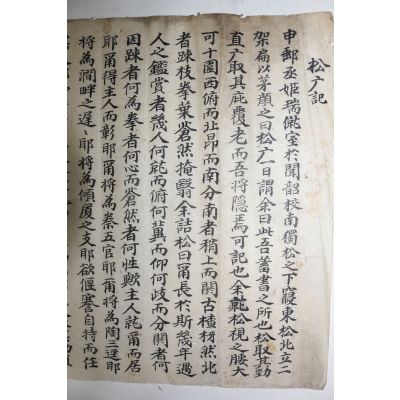 松广記
申郵丞姫瑞僦室於聞韶校南獨松之下寢東松北立二
架扁以茅顔之曰松广一日謂余曰此吾蓄書之所也松取其勁
直广取其庇覆老而吾將隱焉可記也余就松視之腰大
可十圍西俯而北昂而南分南者稍上而関古楂枒然北
者疎枝拳葉蒼然掩翳余詰松曰爾長於斯幾年遇
人之鑑賞者幾人何詘而俯何冀而仰何歧而分関者何
因疎者何為拳者何心而蒼然者何性歟主人就爾而居
耶爾得主人而彰耶爾將為秦五官耶爾將為陶三逕耶
將為澗畔之遲〻耶將為傾厦之支耶欲偃蹇自持而任